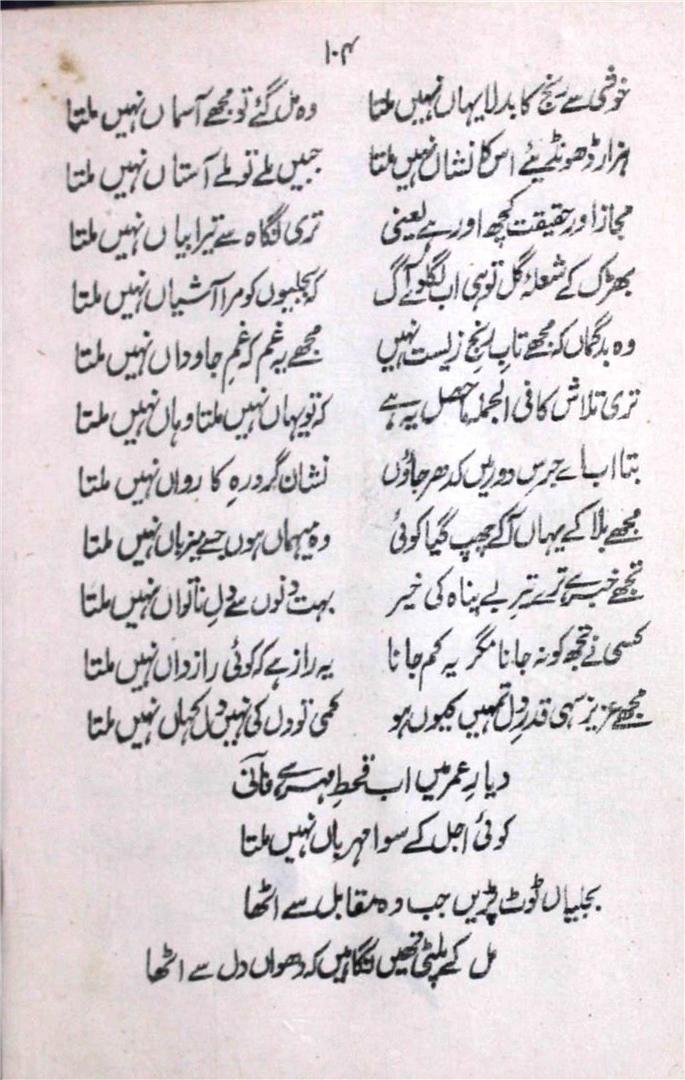 ۱۰۴
خوشی سے رنج کا بدلا یہاں نہیں ملتا وہ مل گئے تو مجھے آسماں نہیں ملتا
ہزار ڈھونڈیئے اس کا نشاں نہیں ملتا جبیں ملے تو ملے آستاں نہیں ملتا
مجاز اور حقیقت کچھ اور ہے یعنی تری نگاہ سے تیرا بیاں نہیں ملتا
بھڑک کے شعلۂ گل تو ہی اب لگا دے آگ کہ بجلیوں کو مرا آشیاں نہیں ملتا
وہ بدگماں کہ مجھے تابِ رنجِ زیست نہیں مجھے یہ غم کہ غمِ جاوداں نہیں ملتا
تری تلاش کا فی الجملہ ماحصل یہ ہے کہ تو یہاں نہیں ملتا وہاں نہیں ملتا
بتا اب اے جرسِ دور میں کدھر جاؤں نشانِ گردِ رہِ کارواں نہیں ملتا
مجھے بلا کے یہاں آکے چھپ گیا کوئی وہ میہماں ہوں جسے میزباں نہیں ملتا
تجھے خبر ہے ترے تیرِ بے پناہ کی خیر بہت دنوں سے دلِ ناتواں نہیں ملتا
کسی نے تجھ کو نہ جانا مگر یہ کم جانا یہ راز ہے کہ کوئی رازداں نہیں ملتا
مجھے عزیز سہی قدرِ دل تمہیں کیوں ہو کمی تو دل کی نہیں دل کہاں نہیں ملتا
دیارِ عمر میں اب قحطِ مہر ہے فانی
کوئی اجل کے سوا مہرباں نہیں ملتا
بجلیاں ٹوٹ پڑیں جب وہ مقابل سے اٹھا
مل کے پلٹی تھیں نگاہیں کہ دھواں دل سے اٹھا